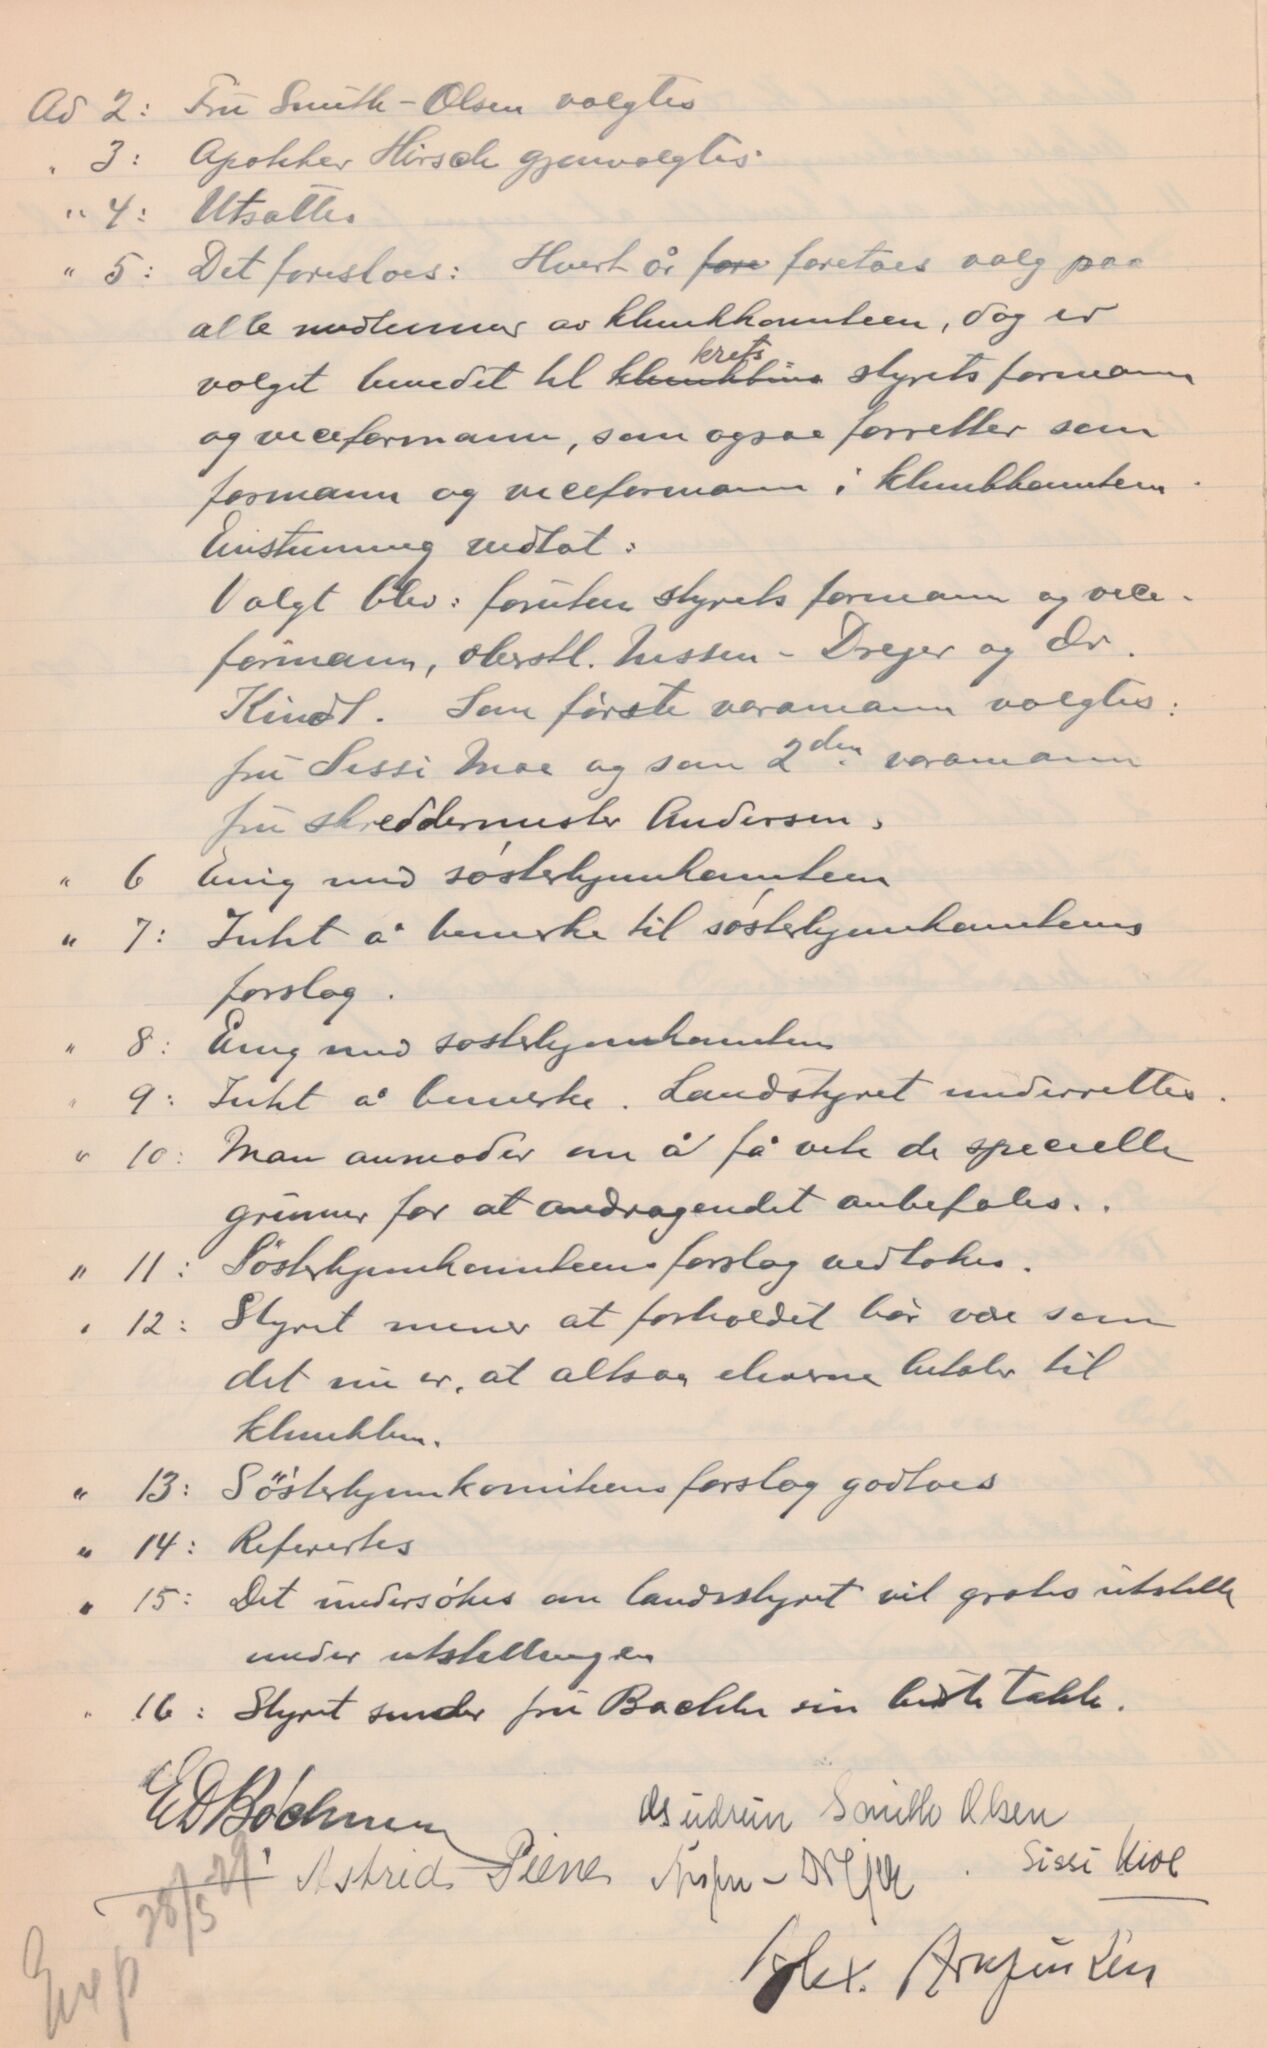 Ad 2: Frü Smith-Olsen valgtes
" 3: Apoteker Hirsch gjenvalgtes.
" 4: Utsattes
" 5: Det foreslaes: Hvert år fore foretaes valg paa
alle medlemmer av klinikkomiteen, dog er
valget bundet til krets klinikkens styrets formann
og viceformann, som ogsaa forretter som
formann og viceformann i klinikkomiteen.
Enstemmig vedtat:
Valgt blev: forüten styrets formann og vice-
formann, oberstl. Nissen-Dreyer og Dr.
Kindt. Som første varamann valgtes:
frü Sissi Moe og som 2den varamann
frü skreddermester Andersen.
" 6 Enig med søsterhjemkomiteen
" 7: Intet å bemerke til søsterhjemkomiteens
forslag.
" 8: Enig med søsterhjemkomiteen
" 9: Intet å bemerke. Landstyret underrettes.
" 10: Man anmoder om å få vite de specielle
grünner for at andragendet anbefales.
" 11: Søsterhjemkomiteens forslag vedtokes.
" 12: Styret mener at forholdet bør være som
det nü er, at altsaa elevene betaler til
klinikken.
" 13: Søsterhjemkomiteens forslag godtaes
" 14: Referertes
" 15: Det ündersøkes om landsstyret vil gratis utstille
under utstillingen
" 16: Styret sender frü Bachke sin beste takk.
ED Bøchman Güdrün Smith Olsen
Astrid Piene Nissen-Dreyer Sissi Moe
Alex.
Exp 28/5 29